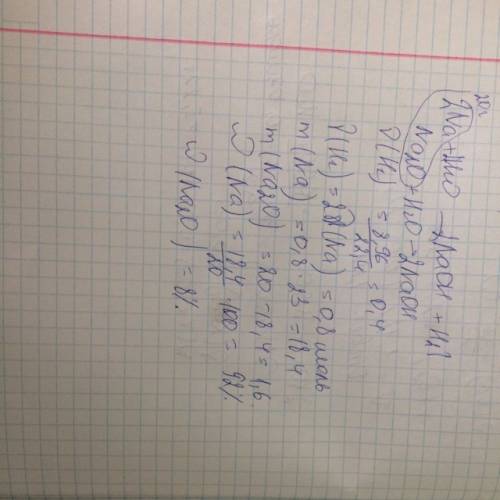 20г
2Na + H2O → 2NaOH + H2↑
Na2O + H2O → 2NaOH
ν(H2) = 8,96/22,4 = 0,4
ν(H2) = 2ν(Na) = 0,8 моль
m(Na) = 0,8 · 23 = 18,4
m(Na2O) = 20 - 18,4 = 1,6
ω(Na) = 18,4/20 · 100 = 92%
ω(Na2O) = 8%